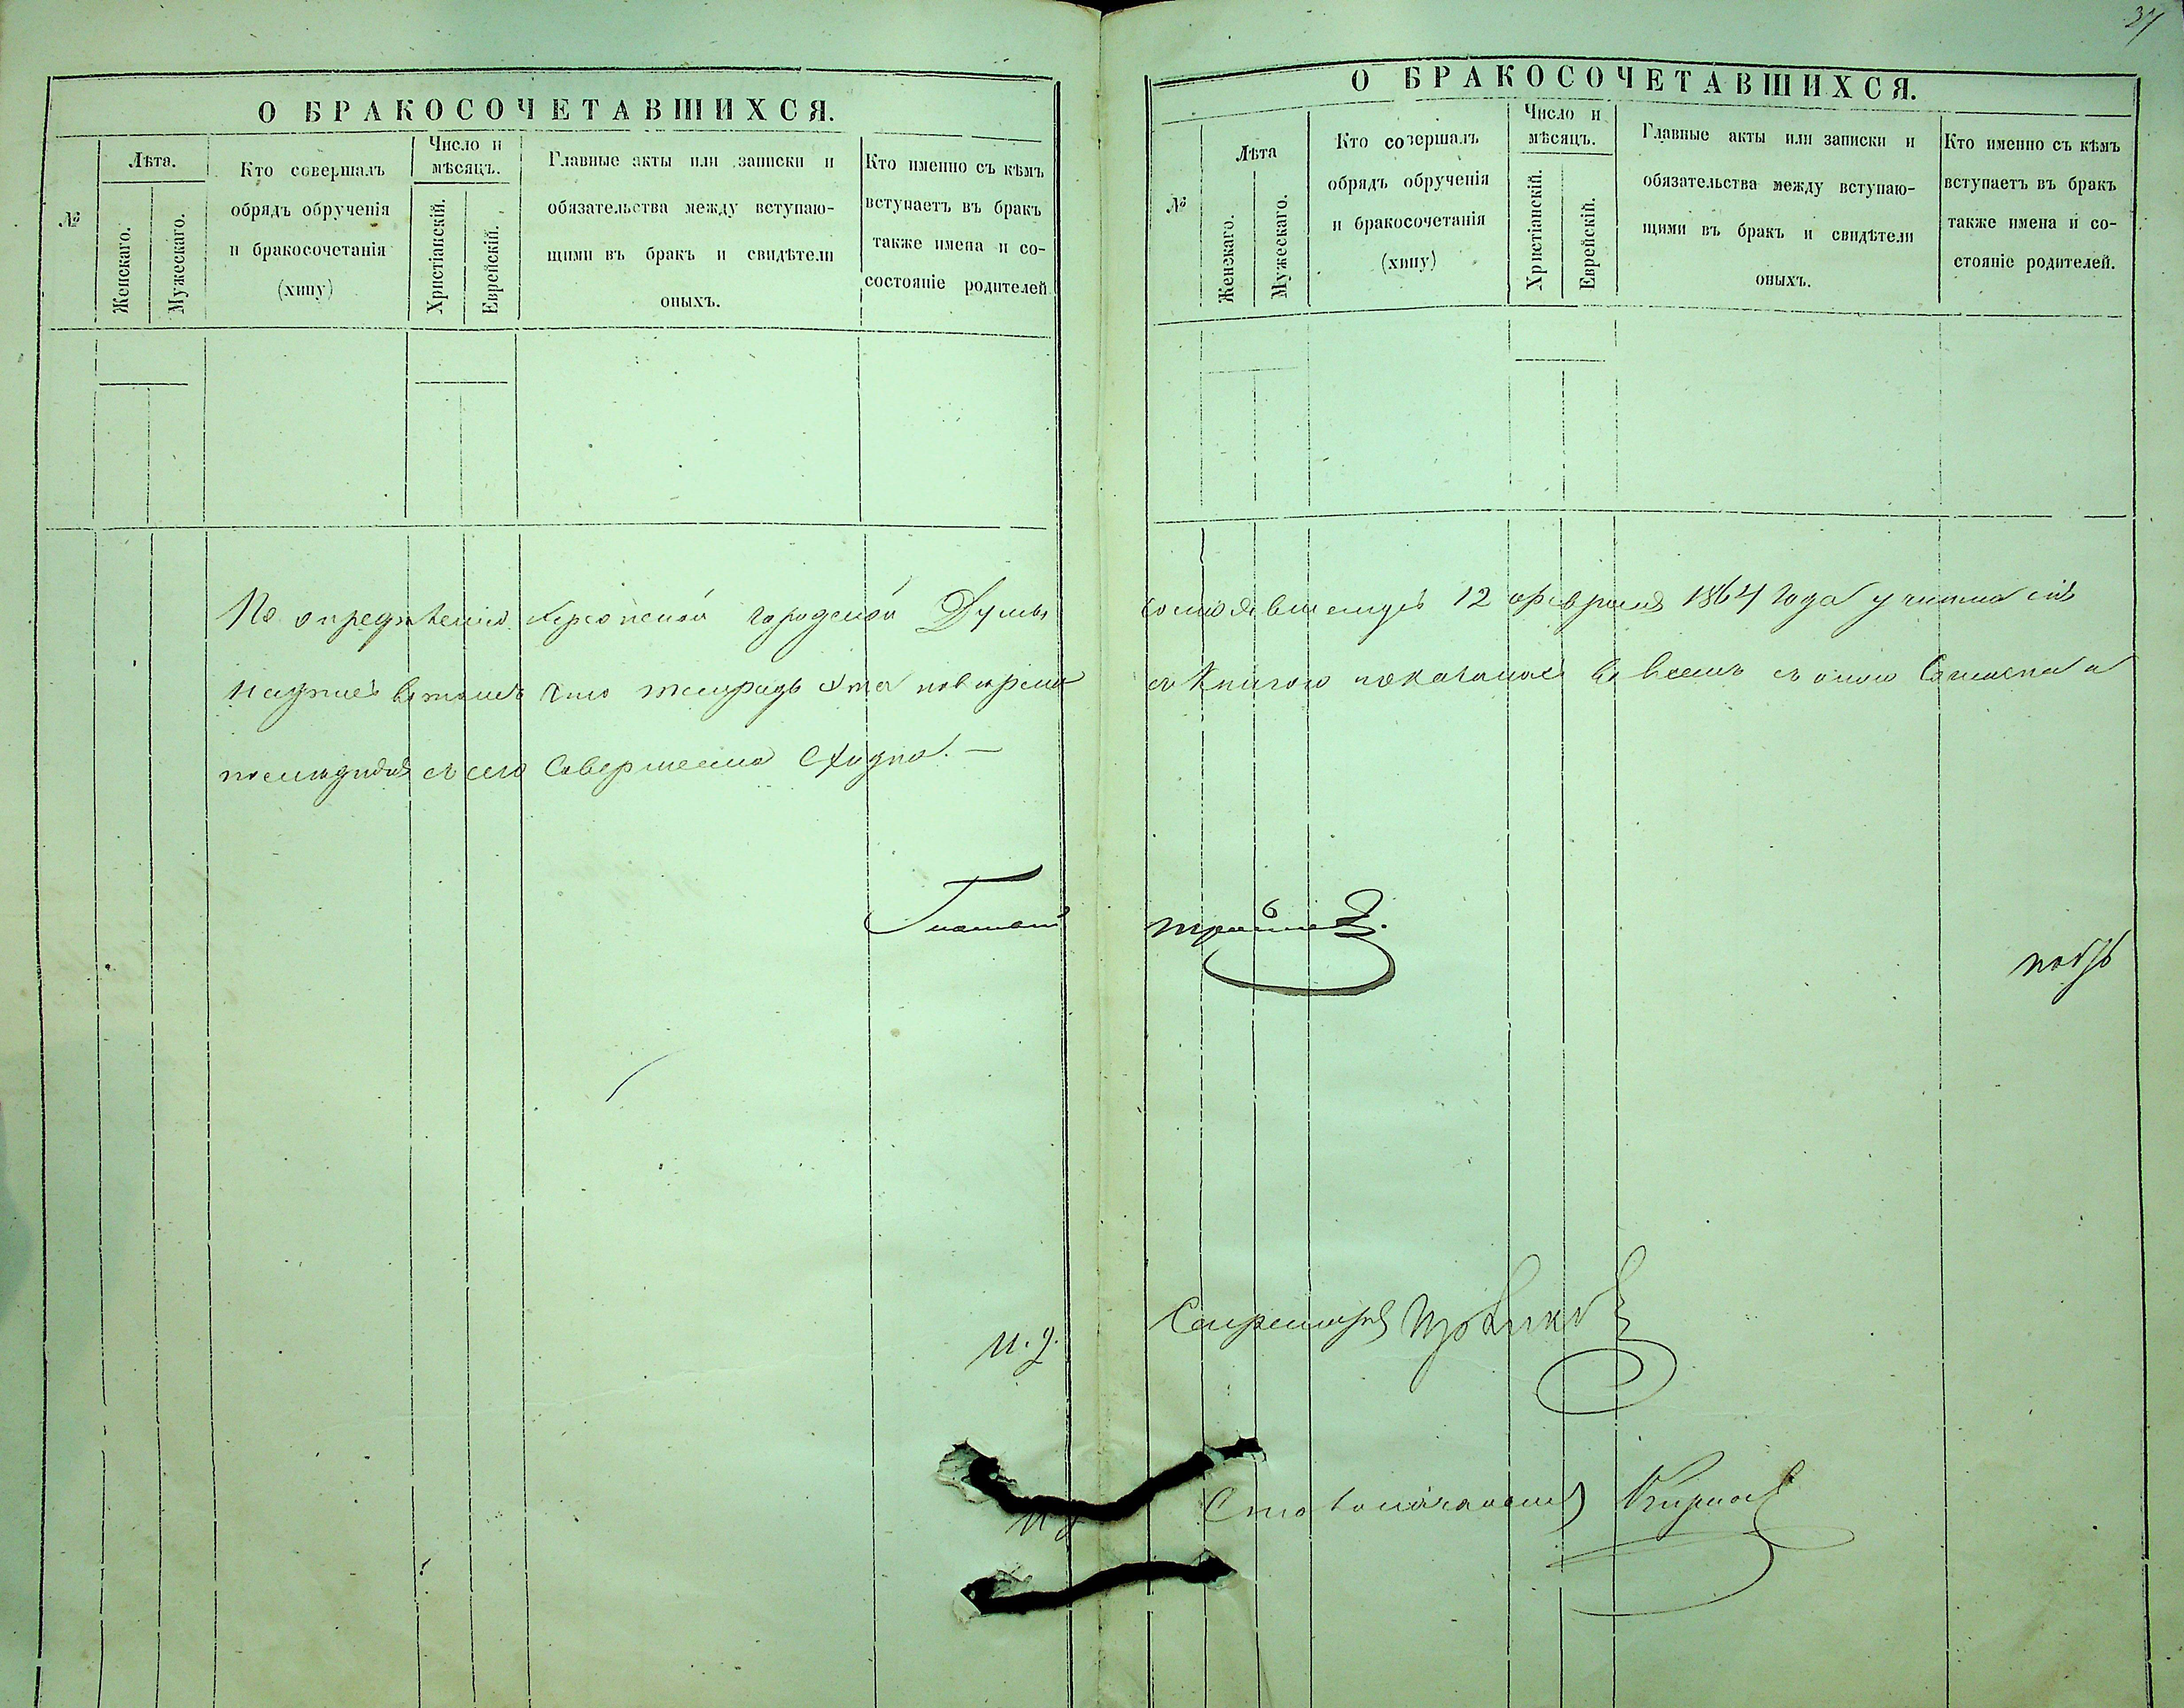 37
О БРАКОСОЧЕТАВШИХСЯ.
№
Лѣта.
Женскаго.
Мужескаго.
Кто совершалъ
обрядъ обрученія
и бракосочетанія
(хипу)
Число и
мѣсяцъ.
Христіанскій.
Еврейскій.
Главные акты или записки и
обязательства между вступаю-
щими въ бракъ и свидѣтели
оныхъ.
Кто именно съ кѣмъ
вступаетъ въ бракъ
также имена и со-
состояніе родителей
По опредѣленію Херсонской городской Думы
надписъ въ томъ что тетрадь эта по
последняя съ сего Совершенно Сходна. —
Гласный
И. д.
И д
О БРАКОСОЧЕТАВШИХСЯ.
№
Лѣта
Женскаго.
Мужескаго.
Кто совершалъ
обрядъ обрученія
и бракосочетанія
(хипу)
Число и
мѣсяцъ.
Христіанскій.
Еврейскій.
Главные акты или записки и
обязательства между вступаю-
щими въ бракъ и свидѣтели
оныхъ.
Кто именно съ кѣмъ
вступаетъ въ бракъ
также имена и со-
стояніе родителей.
состоявшемуся 12 февраля 1864 года учинена сія
съ Книгою показалось во всемъ съ оною Согласна а
Секретарь
Столоначальникъ